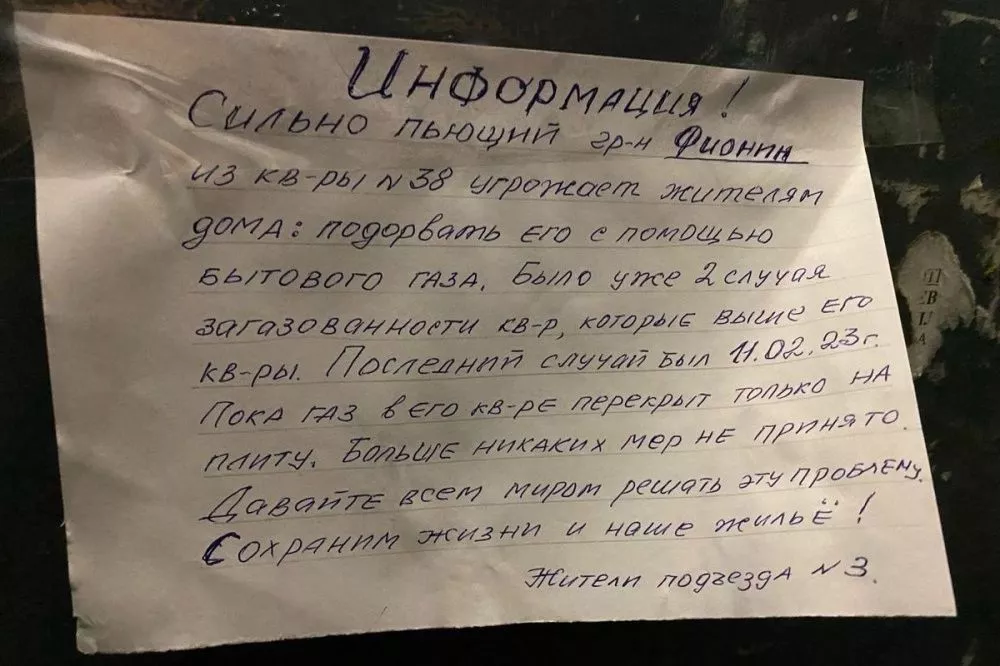 Информация!
Сильно пьющий гр-н Фионин
из кв-ры N 38 угрожает жителям
дома: подорвать его с помощью
бытового газа. Было уже 2 случая
загазованности кв-р, которые выше его
кв-ры. Последний случай был 11.02.23г.
Пока газ в его кв-ре перекрыт только на
плиту. Больше никаких мер не принято.
Давайте всем миром решать эту проблему.
Сохраним жизни и наше жильё!
Жители подъезда N 3.